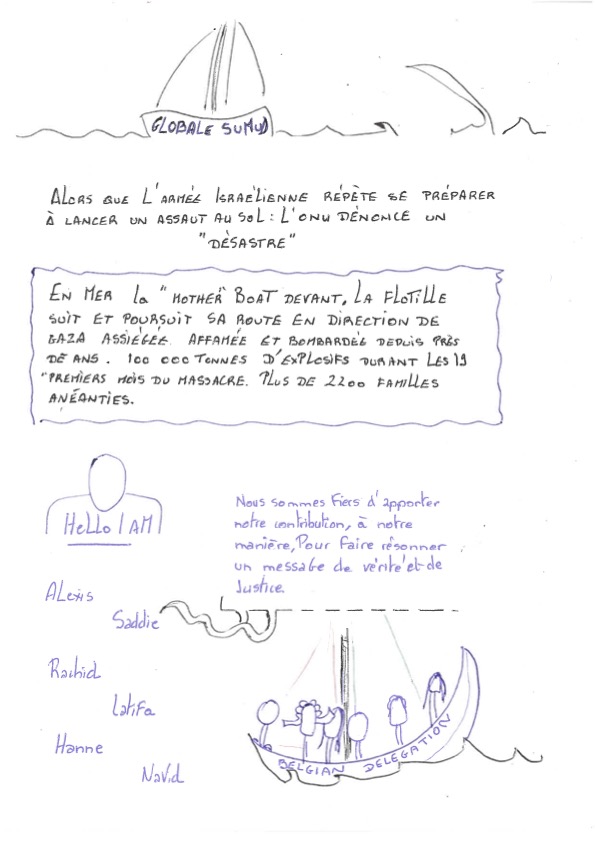 GLOBALE SUMUD
ALORS QUE L'ARMÉE ISRAÉLIENNE RÉPÈTE SE PRÉPARER
À LANCER UN ASSAUT AU SOL : L'ONU DÉNONCE UN
"DÉSASTRE"
EN MER la "MOTHER" BOAT DEVANT, LA FLOTILLE
SUIT ET POURSUIT SA ROUTE EN DIRECTION DE
GAZA ASSIÉGÉE AFFAMÉE ET BOMBARDÉE DEPUIS PRÈS
DE ANS. 100 000 TONNES D'EXPLOSIFS DURANT LES 19
"PREMIERS MOIS DU MASSACRE. PLUS DE 2200 FAMILLES
ANÉANTIES.
HeLLo I AM
Nous sommes Fiers d'apporter
notre contribution, à notre
manière, Pour Faire résonner
un message de vérité et de
Justice.
ALexis
Saddie
Rachid
Latifa
Hanne
Navid
BELGIAN DELEGATION